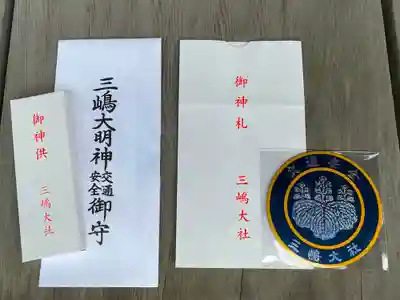 御神供
三嶋大社
三嶋大明神
交通
安全
御守
御神札
三嶋大社
交通安全
三嶋大社